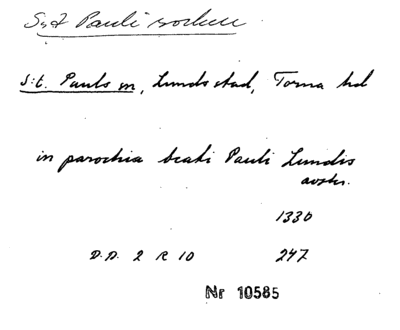 S:t Pauli socken
S:t. Pauls sn, Lunds stad, Torna hd
in parochia beati Pauli Lundis
avskr.
1330
D.D. 2 R 10 247
Nr 10585